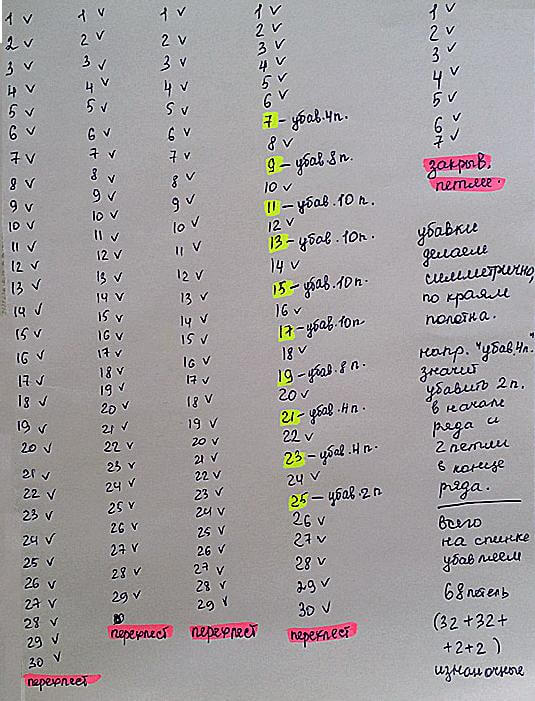 1 v
2 v
3 v
4 v
5 v
6 v
7 v
8 v
9 v
10 v
11 v
12 v
13 v
14 v
15 v
16 v
17 v
18 v
19 v
20 v
21 v
22 v
23 v
24 v
25 v
26 v
27 v
28 v
29 v
30 v
перехлест
1 v
2 v
3 v
4 v
5 v
6 v
7 v
8 v
9 v
10 v
11 v
12 v
13 v
14 v
15 v
16 v
17 v
18 v
19 v
20 v
21 v
22 v
23 v
24 v
25 v
26 v
27 v
28 v
29 v
перехлест
1 v
2 v
3 v
4 v
5 v
6 v
7 v
8 v
9 v
10 v
11 v
12 v
13 v
14 v
15 v
16 v
17 v
18 v
19 v
20 v
21 v
22 v
23 v
24 v
25 v
26 v
27 v
28 v
29 v
перехлест
1 v
2 v
3 v
4 v
5 v
6 v
7 – убав. 4п.
8 v
9 – убав. 8 п.
10 v
11 – убав. 10 п.
12 v
13 – убав. 10 п.
14 v
15 – убав. 10 п.
16 v
17 – убав. 10 п.
18 v
19 – убав. 8 п.
20 v
21 – убав. 4 п.
22 v
23 – убав. 4 п.
24 v
25 – убав. 2 п
26 v
27 v
28 v
29 v
30 v
перехлест
1 v
2 v
3 v
4 v
5 v
6 v
7 v
закрыв.
петли.
убавки
делаем
симметрично,
по краям
полотна.
напр. "убав. 4п."
значит
убавить 2 п.
в начале
ряда и
2 петли
в конце
ряда.
всего
на спинке
убавляем
68 петель
(32 + 32 +
+ 2 + 2 )
изнаночные